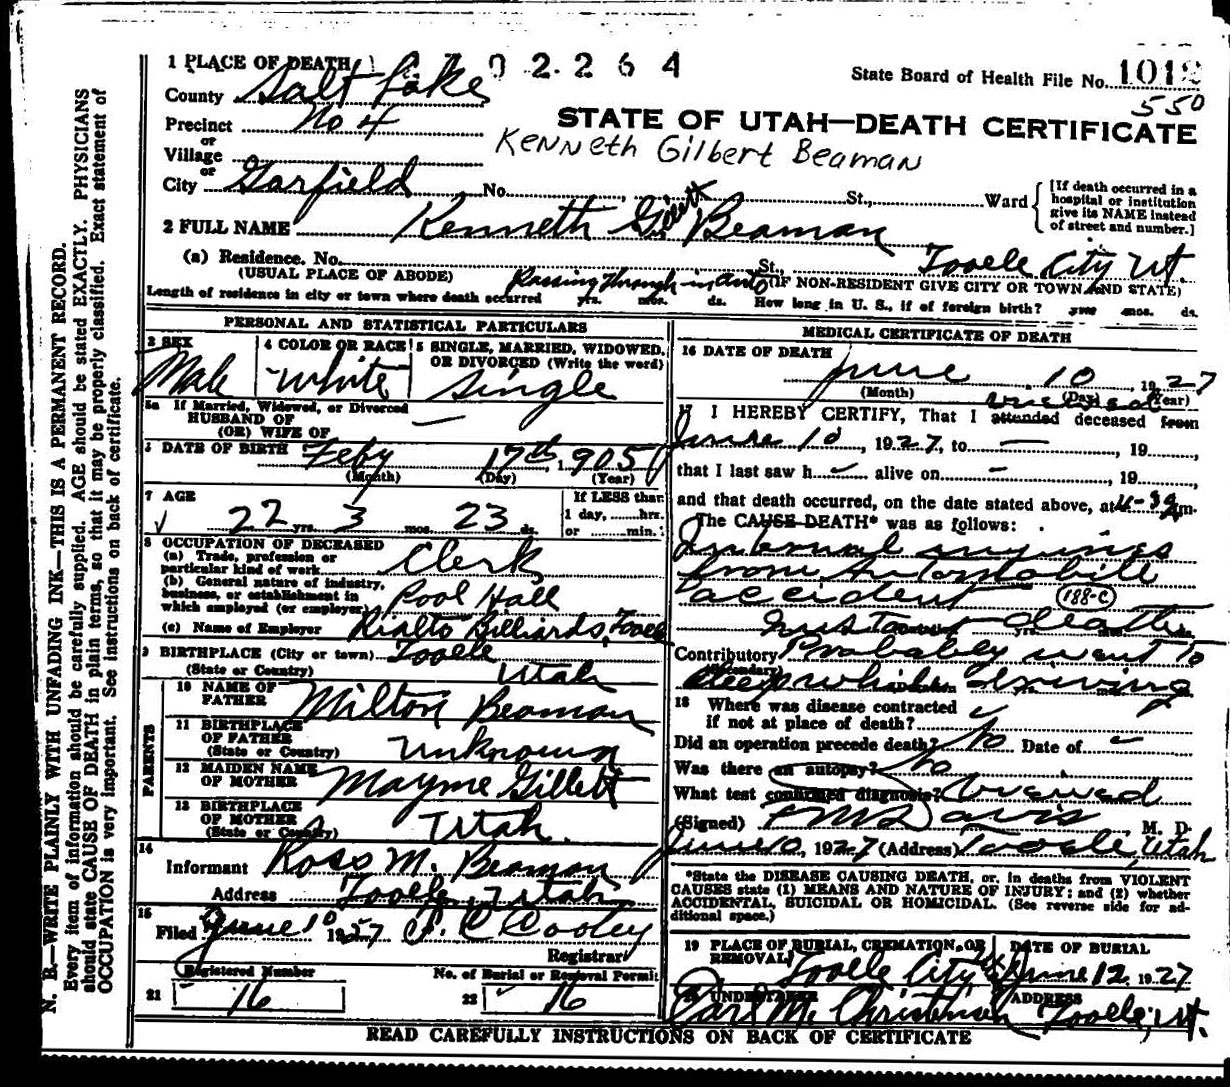 1 PLACE OF DEATH 02264
State Board of Health File No. 1012
550
County Salt Lake
Precinct No 4
or
Village
or
City Garfield No. St., Ward
[If death occurred in a hospital or institution give its NAME instead of street and number.]
STATE OF UTAH—DEATH CERTIFICATE
Kenneth Gilbert Beaman
2 FULL NAME Kenneth Beaman
(a) Residence. No. St., Tooele City Ut.
(USUAL PLACE OF ABODE) (IF NON-RESIDENT GIVE CITY OR TOWN AND STATE)
Length of residence in city or town where death occurred Passing through in auto yrs. mos. ds. How long in U. S., if of foreign birth? yrs mos. ds.
PERSONAL AND STATISTICAL PARTICULARS
3 SEX
Male
4 COLOR OR RACE
White
5 SINGLE, MARRIED, WIDOWED, OR DIVORCED (Write the word)
Single
5a If Married, Widowed, or Divorced
HUSBAND OF
(OR) WIFE OF —
6 DATE OF BIRTH Feby 17th, 1905
(Month) (Day) (Year)
7 AGE
22 yrs. 3 mos. 23 ds.
If LESS than
1 day, ......hrs.
or ........min.
8 OCCUPATION OF DECEASED
(a) Trade, profession or
particular kind of work Clerk
(b) General nature of industry,
business, or establishment in
which employed (or employer) Pool Hall
(c) Name of Employer Rialto Billiards, Tooele
9 BIRTHPLACE (City or town) Tooele
(State or Country) Utah
PARENTS
10 NAME OF FATHER Milton Beaman
11 BIRTHPLACE OF FATHER
(State or Country) Unknown
12 MAIDEN NAME OF MOTHER Mayme Gillett
13 BIRTHPLACE OF MOTHER
(State or Country) Utah.
14
Informant Ross M. Beaman
Address Tooele, Utah
15
Filed June 10 1927 P. C. Cooley
Registrar
Registered Number
21 16
No. of Burial or Removal Permit
22 16
MEDICAL CERTIFICATE OF DEATH
16 DATE OF DEATH
June 10, 1927
(Month) (Day) (Year)
17 I HEREBY CERTIFY, That I attended viewed deceased from
June 10, 1927, to —, 19
that I last saw h alive on —, 19
and that death occurred, on the date stated above, at 4-30 m.
The CAUSE DEATH* was as follows:
Internal injuries
from Automobile
accident 188-c
Instant death
Contributory Probably went to
(Secondary) sleep while driving
18 Where was disease contracted
if not at place of death?
Did an operation precede death? No Date of —
Was there an autopsy? No
What test confirmed diagnosis? Viewed
(Signed) Davis M. D.
June 10, 1927 (Address) Tooele Utah
*State the DISEASE CAUSING DEATH, or, in deaths from VIOLENT CAUSES state (1) MEANS AND NATURE OF INJURY; and (2) whether ACCIDENTAL, SUICIDAL OR HOMICIDAL. (See reverse side for additional space.)
19 PLACE OF BURIAL, CREMATION, OR REMOVAL
Tooele City Ut
DATE OF BURIAL
June 12, 1927
20 UNDERTAKER
Carl M. Christensen
ADDRESS
Tooele, Ut.
READ CAREFULLY INSTRUCTIONS ON BACK OF CERTIFICATE
N. B.—WRITE PLAINLY WITH UNFADING INK—THIS IS A PERMANENT RECORD.
Every item of information should be carefully supplied. AGE should be stated EXACTLY. PHYSICIANS
should state CAUSE OF DEATH in plain terms, so that it may be properly classified. Exact statement of
OCCUPATION is very important. See instructions on back of certificate.